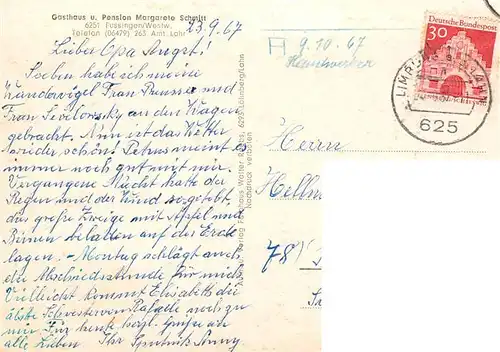 Gasthaus u. Pension Margarete Schmitt
6251 Eussingen/Westw.
Telefon (06479) 263 Amt Lahr
23.9.67
Lieber Opa Angst!
Soeben habe ich meine
Wandervögel Frau Brunner und
Frau an den Wagen
gebracht. Nun ist das Wetter
wieder schön! Petrus meint es
immer noch gut mit mir.
Vergangene Nacht hatte der
Regen und der Wind so getobt,
das große Zweige mit Äpfel und
Birnen beladen auf der Erde
lagen. - Montag schlägt auch
die Abschiedsstunde für mich
Vielleicht kommt Elisabeth die
älteste Schwester vom noch zu
mir Für heute herzl. Grüße an
alle Lieben Ihr
Verlag Foto-Haus Walter 6293 Löhnberg/Lahn
Nachdruck verboten
9.10.67
Deutsche Bundespost
30
LIMBURG
625
Herrn
Hellm
78)